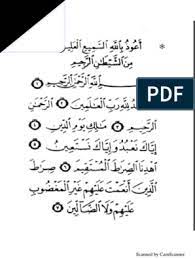 أَعُوذُ بِاللَّهِ السَّمِيعِ
مِنَ الشَّيْطَٰنِ الرَّجِيمِ
اللَّهِ الرَّحْمَٰنِ الرَّحِيمِ ١
لِلَّهِ رَبِّ الْعَٰلَمِينَ ٢ الرَّحْمَٰنِ
الرَّحِيمِ ٣ مَٰلِكِ يَوْمِ الدِّينِ ٤
إِيَّاكَ نَعْبُدُ وَإِيَّاكَ نَسْتَعِينُ ٥
اهْدِنَا الصِّرَٰطَ الْمُسْتَقِيمَ ٦ صِرَٰطَ
الَّذِينَ أَنْعَمْتَ عَلَيْهِمْ غَيْرِ الْمَغْضُوبِ
عَلَيْهِمْ وَلَا الضَّالِّينَ ٧
PDF
Scanned by CamScanner